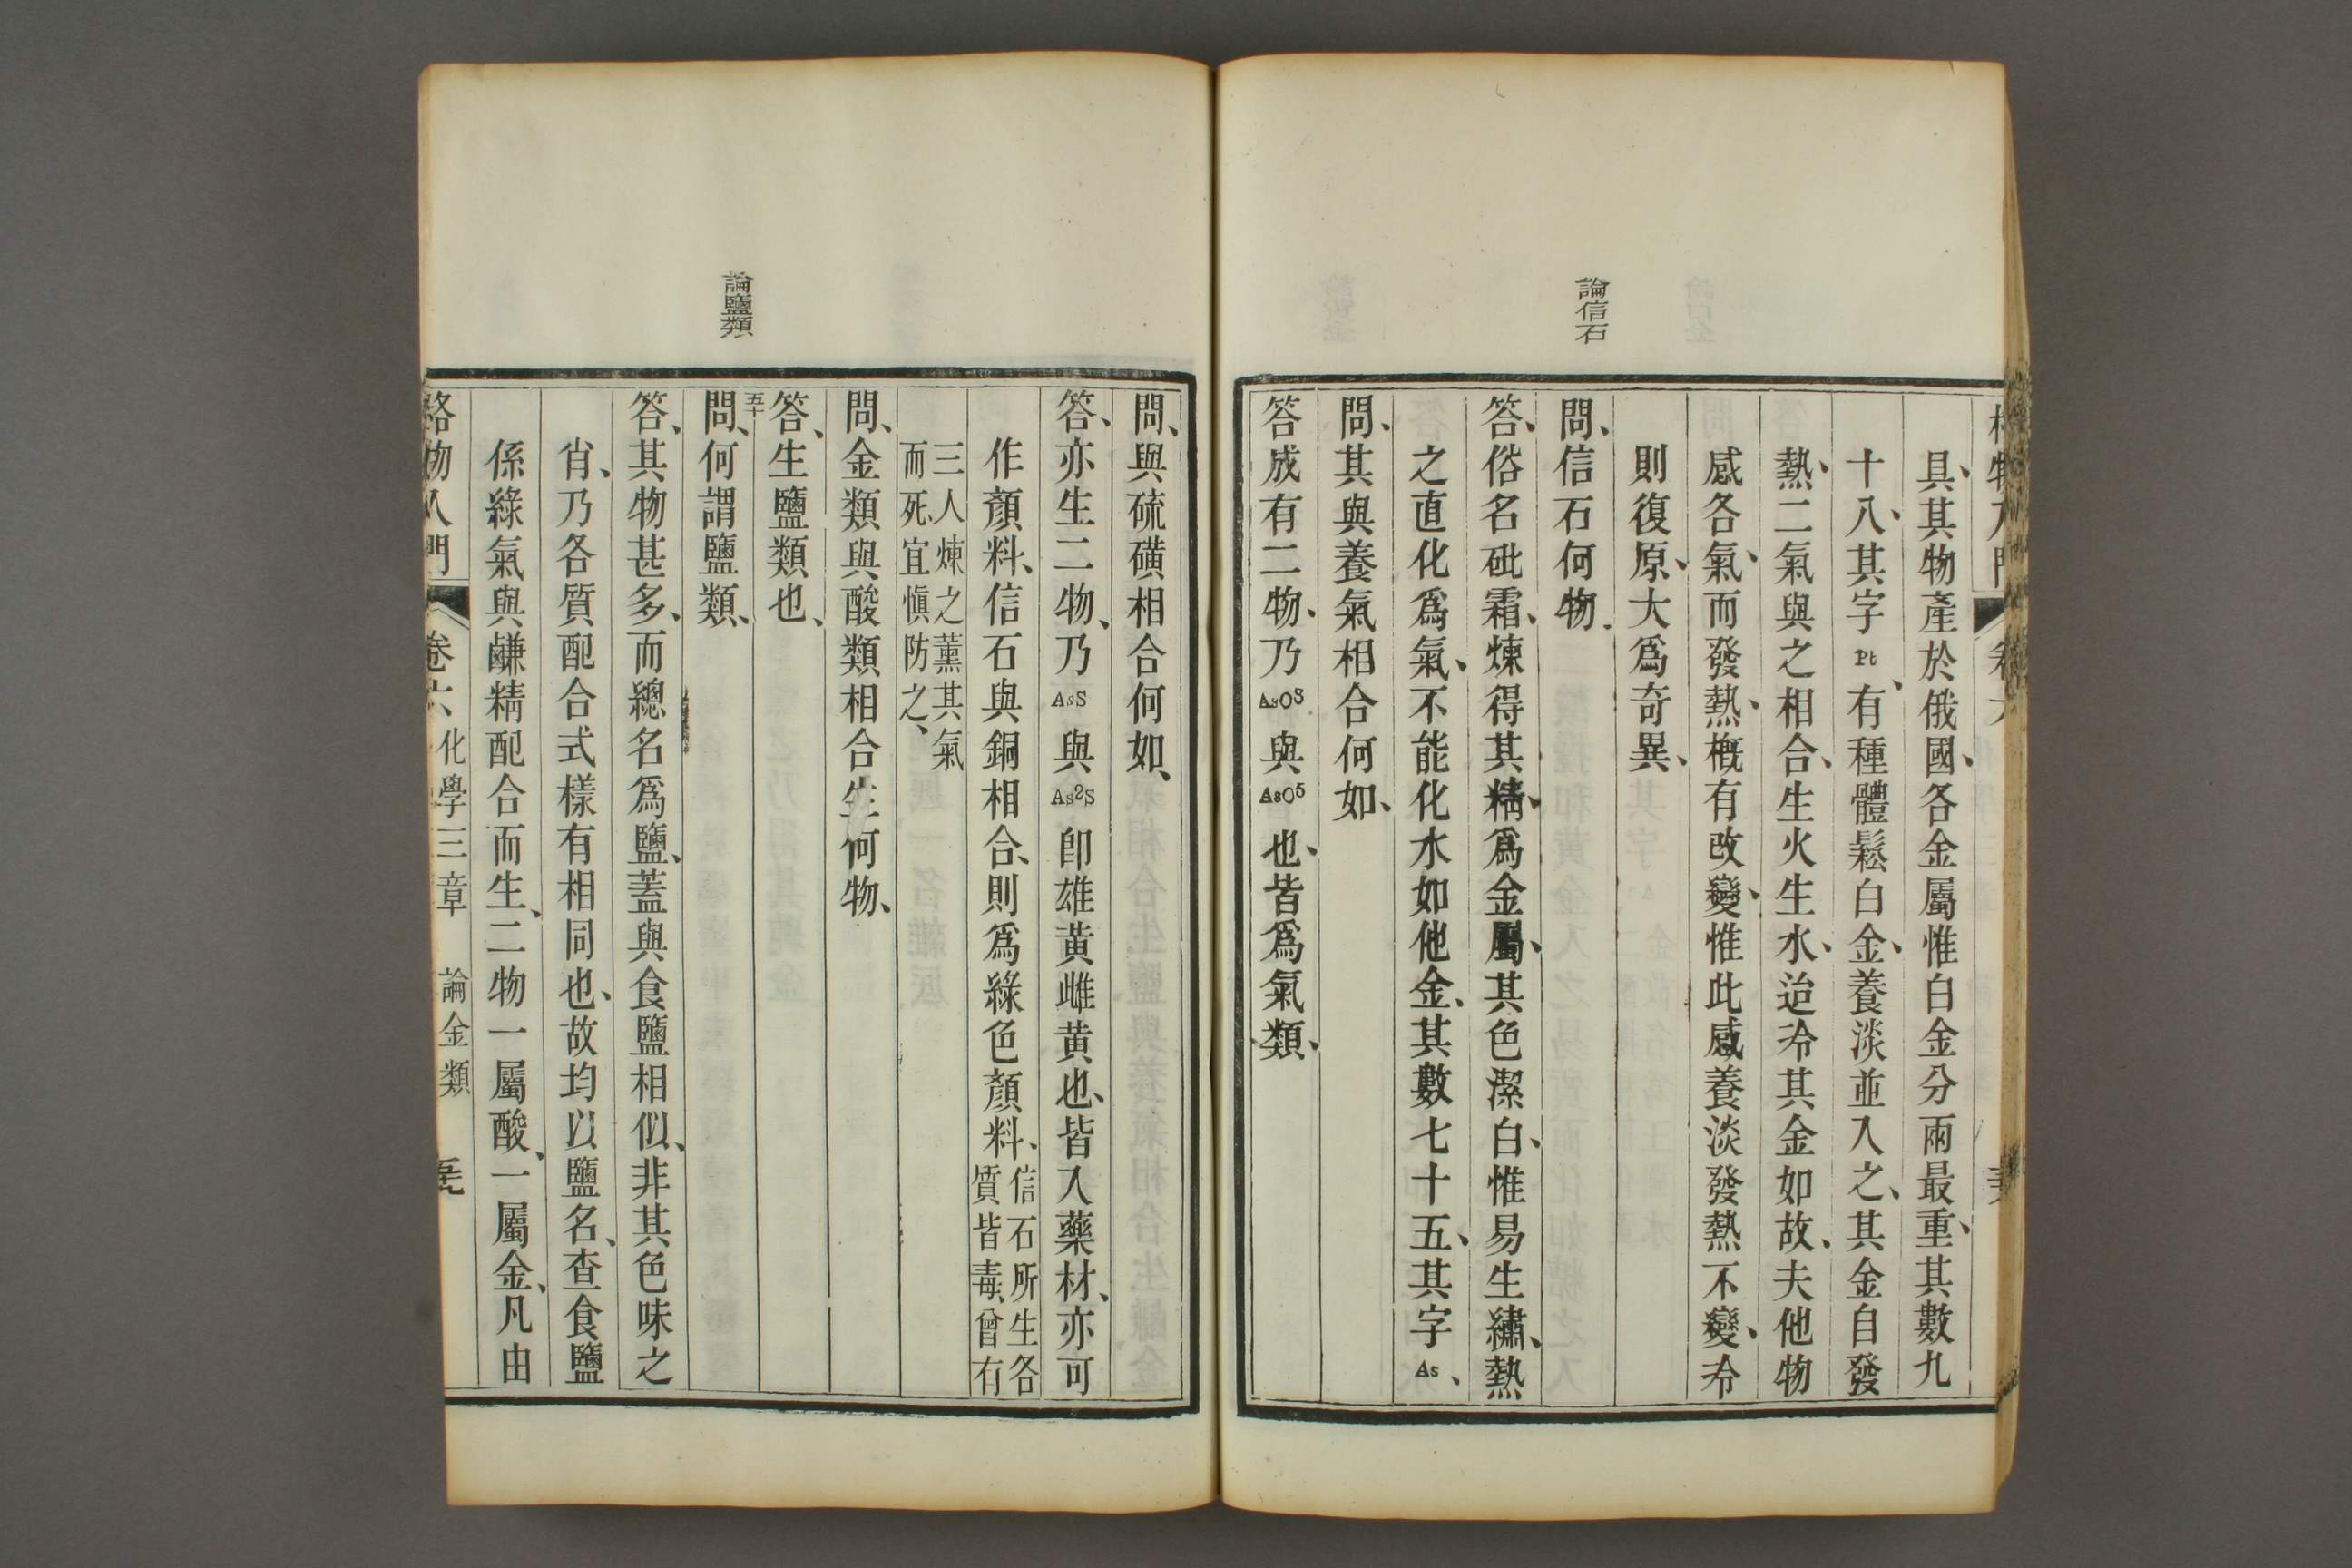 論信石
具、其物產於俄國、各金屬惟白金分兩最重、其數九
十八、其字Pt、有種體鬆白金、養淡並入之、其金自發
熱、二氣與之相合、生火生水、迨冷其金如故、夫他物
感各氣、而發熱、槪有改變、惟此感養淡發熱不變、冷
則復原、大爲奇異、
問、信石何物、
答、俗名砒霜、煉得其精、爲金屬、其色潔白、惟易生繡、熱
之直化爲氣、不能化水如他金、其數七十五、其字As、
問、其與養氣相合何如、
答成有二物、乃AsO3與AsO5也、皆爲氣類、
論鹽類
問、與硫磺相合何如、
答、亦生二物、乃AsS與As2S卽雄黄雌黄也、皆入藥材、亦可
作顏料、信石與銅相合、則爲綠色顏料、信石所生各質皆毒、曾有
三人煉之薰其氣而死、宜愼防之、
問、金類與酸類相合生何物、
答、生鹽類也、
五十
問、何謂鹽類、
答、其物甚多、而總名爲鹽、蓋與食鹽相似、非其色味之
肖、乃各質配合式樣有相同也、故均以鹽名、查食鹽
係綠氣與鹻精配合而生、二物一屬酸、一屬金、凡由
格物入門 卷六 化學三章 論金類